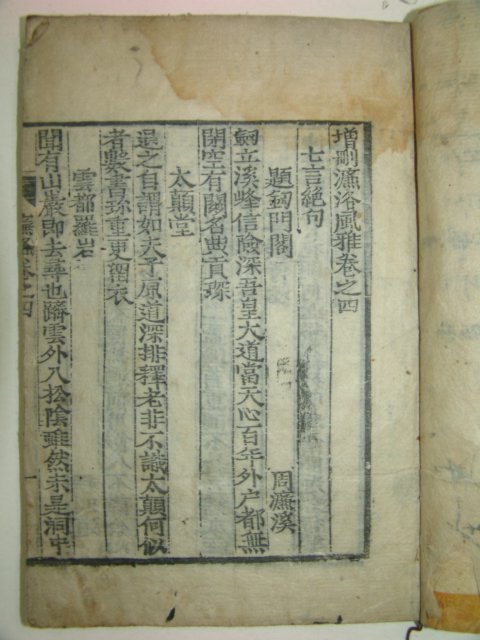 增刪濂洛風雅卷之四
七言絶句
題劒門閣 周濂溪
劒立溪峰信險深吾皇大道當天心百年外户都無
閉空有關名典貢琛
太顚堂
退之自謂如夫子原道深排釋老非不識太顚何似
者數書珍重更留衣
雲都羅岩
聞有山巖即去尋也躋雲外入松陰雖然未是洞中
濂洛卷之四